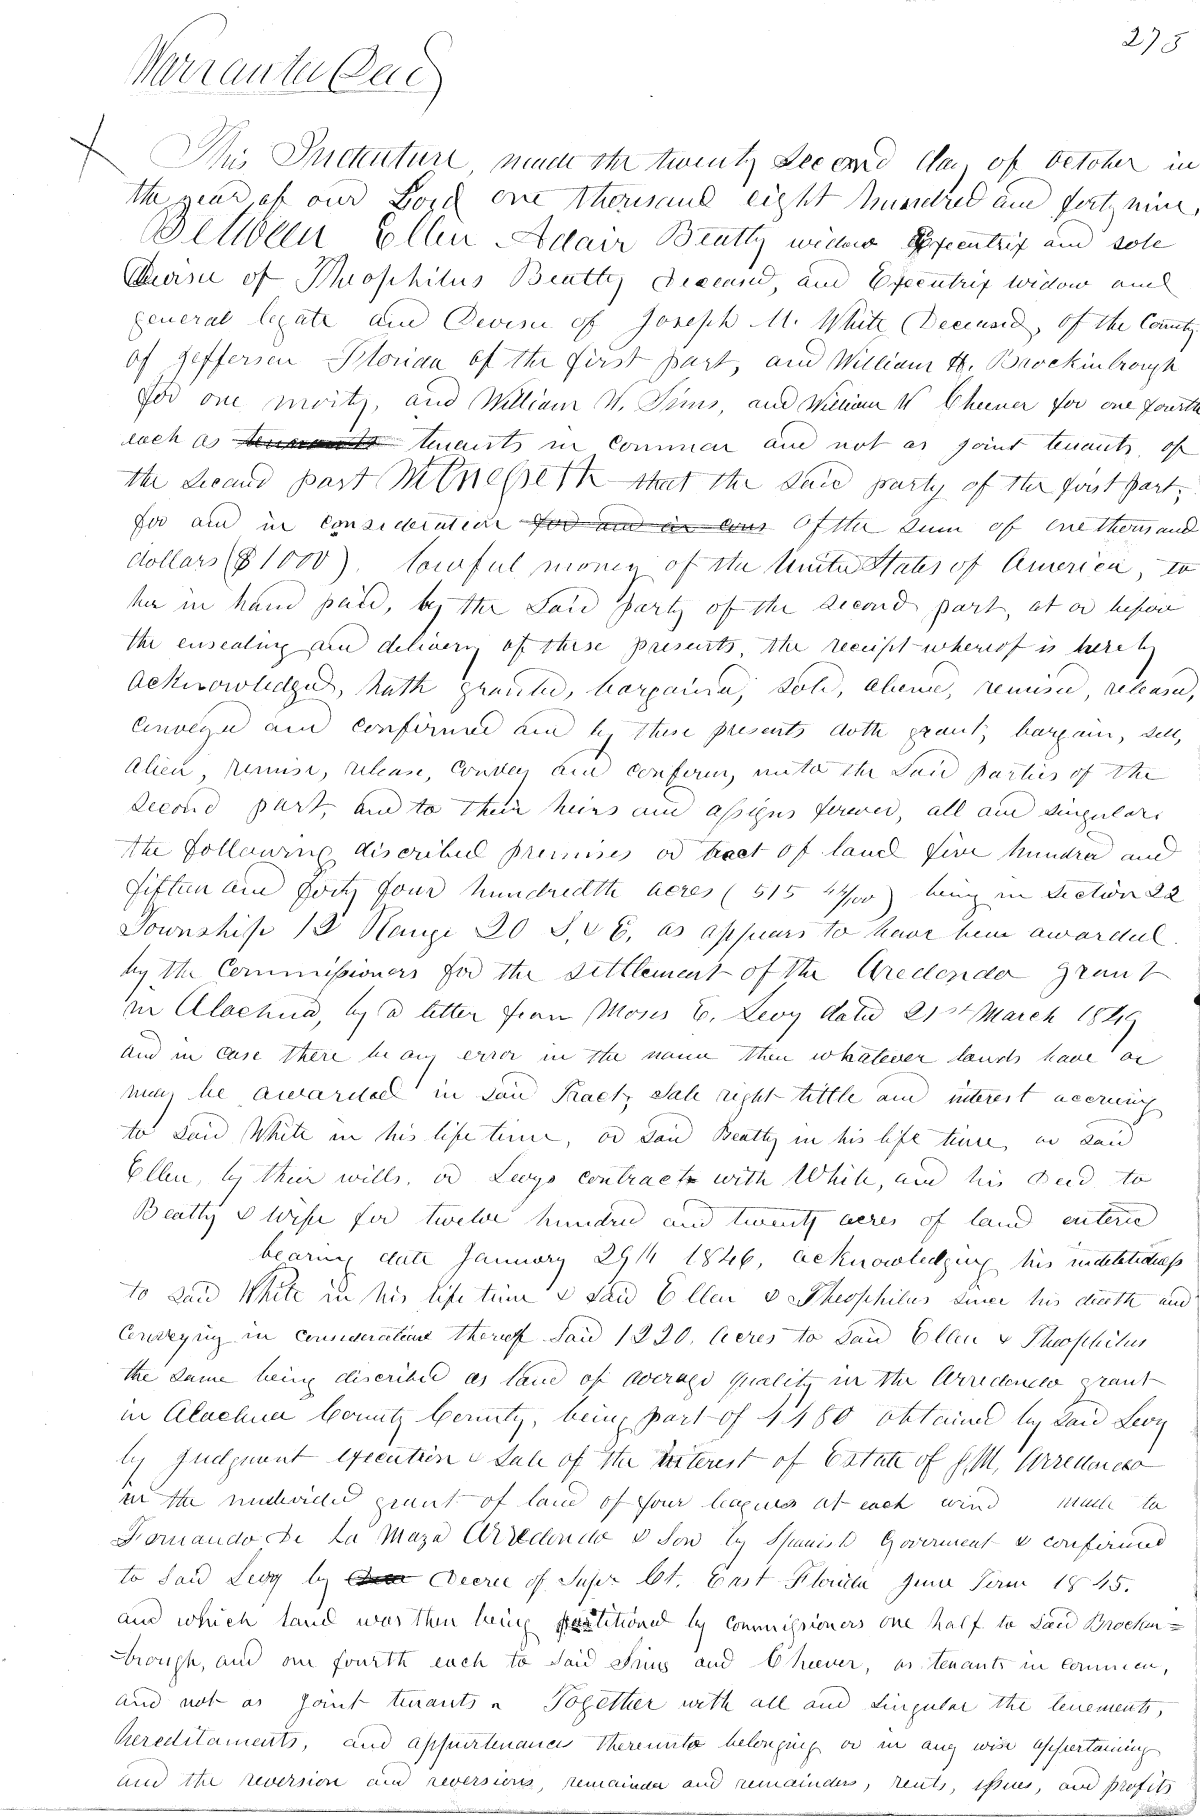 275
Warranty Deed
This Indenture, made the twenty Second day of October in
the year of our Lord one thousand eight hundred and forty nine,
Between Ellen Adair Beatty widow Executrix and sole
Devise of Theophilus Beatty deceased, and Executrix widow and
general legate and Devise of Joseph M. White (Deceased), of the County
of Jefferson Florida of the first part, and William H. Brockinbrough
for one moity, and William W. Sims, and William W Cheever for one fourth
each as tenants in common and not as joint tenants, of
the second part Witnesseth that the said party of the first part,
for and in consideration for and in cons of the sum of one thousand
dollars ($1000). lawful money of the United States of America, to
her in hand paid, by the said party of the second part, at or before
the ensealing and delivery of these presents, the receipt whereof is hereby
acknowledged, hath granted, bargained, sold, aliened, remised, released,
conveyed and confirmed and by these presents doth grant, bargain, sell,
alien, remise, release, convey and confirm, unto the said parties of the
second part, and to their heirs and assigns forever, all and singular
the following discribed premises or tract of land five hundred and
fifteen and forty four hundredth acres (515 44/100) being in Section 22
Township 12 Range 20 S. & E. as appears to have been awarded
by the Commissioners for the settlement of the Aredondo grant
in Alachua, by a letter from Moses E. Levy dated 21st March 1849
and in case there be any error in the name then whatever lands have or
may be awarded in said Tract, sale right tittle and interest accruing
to said White in his life time, or said Beatty in his life time, or said
Ellen, by their wills, or Levys contract with White, and his Deed to
Beatty & wife for twelve hundred and twenty acres of land entered
bearing date January 29th 1846, acknowledging his indebtedness
to said White in his life time & said Ellen & Theophilus since his death and
conveying in consideration thereof said 1220. acres to said Ellen & Theophilus
the same being discribed as land of average quality in the Arredondo grant
in Alachua County County, being part of 4480 obtained by said Levy
by judgment execution & sale of the interest of Estate of J.M. Arredondo
in the undivided grant of land of four leagues at each wind made to
Fernando De La Maza Arredondo & Son by Spanish Goverment & confirmed
to said Levy by Decree of Supr Ct. East Florida June Term 1845.
and which land was then being partitioned by commissioners one half to said Brockin=
=brough, and one fourth each to said Sims and Cheever, as tenants in common,
and not as joint tenants. Together with all and singular the tenements,
hereditaments, and appurtenances thereunto belonging or in any wise appertaining
and the reversion and reversions, remainder and remainders, rents, issues, and profits